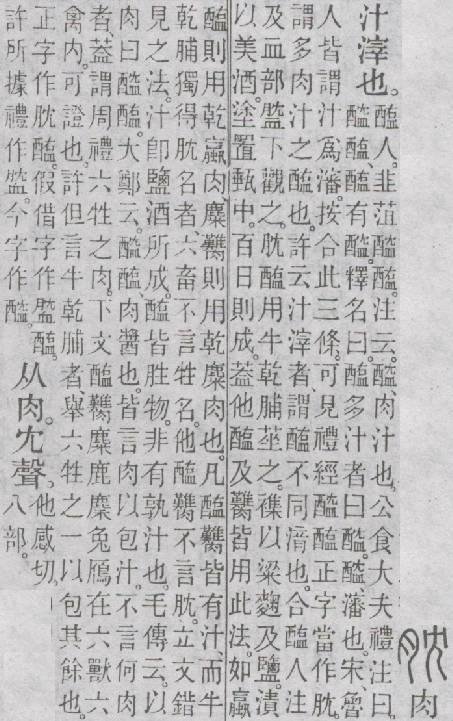 䏙肉
汁滓也。
醓人。韭菹醓醢。注云。醓、肉汁也。公食大夫禮注曰。
醓醢、醢有醓。釋名曰。醢多汁者曰醓。醓、瀋也。宋魯
人皆謂汁爲瀋。按合此三條。可見禮經醓醢正字當作䏙。
謂多肉汁之醢也。許云汁滓者、謂醢不同湇也。合醢人注
及血部𥂓下觀之。䏙醢用牛乾脯莝之。襍以粱麴及鹽。漬
以美酒。塗置甀中。百日則成。葢他醢及臡皆用此法。如蠃
醢則用乾蠃肉。麋臡則用乾麋肉也。凡醢臡皆有汁。而牛
乾脯獨得䏙名者、六畜不言牲名。他醢臡不言䏙。立文錯
見之法。汁卽鹽酒所成。醓皆胜物。非有孰汁也。毛傳云。以
肉曰醓醢。大鄭云。醓醢、肉醬也。皆言肉以包汁。不言何肉
者、葢謂周禮六牲之肉。下文醢臡麋鹿麇兔鴈在六獸六
禽內。可證也。許但言牛乾脯者、舉六牲之一以包其餘也。
正字作䏙醢。假借字作𥂓醢。
許所據禮作𥂓。今字作醓。
从肉。冘聲。
他感切。
八部。